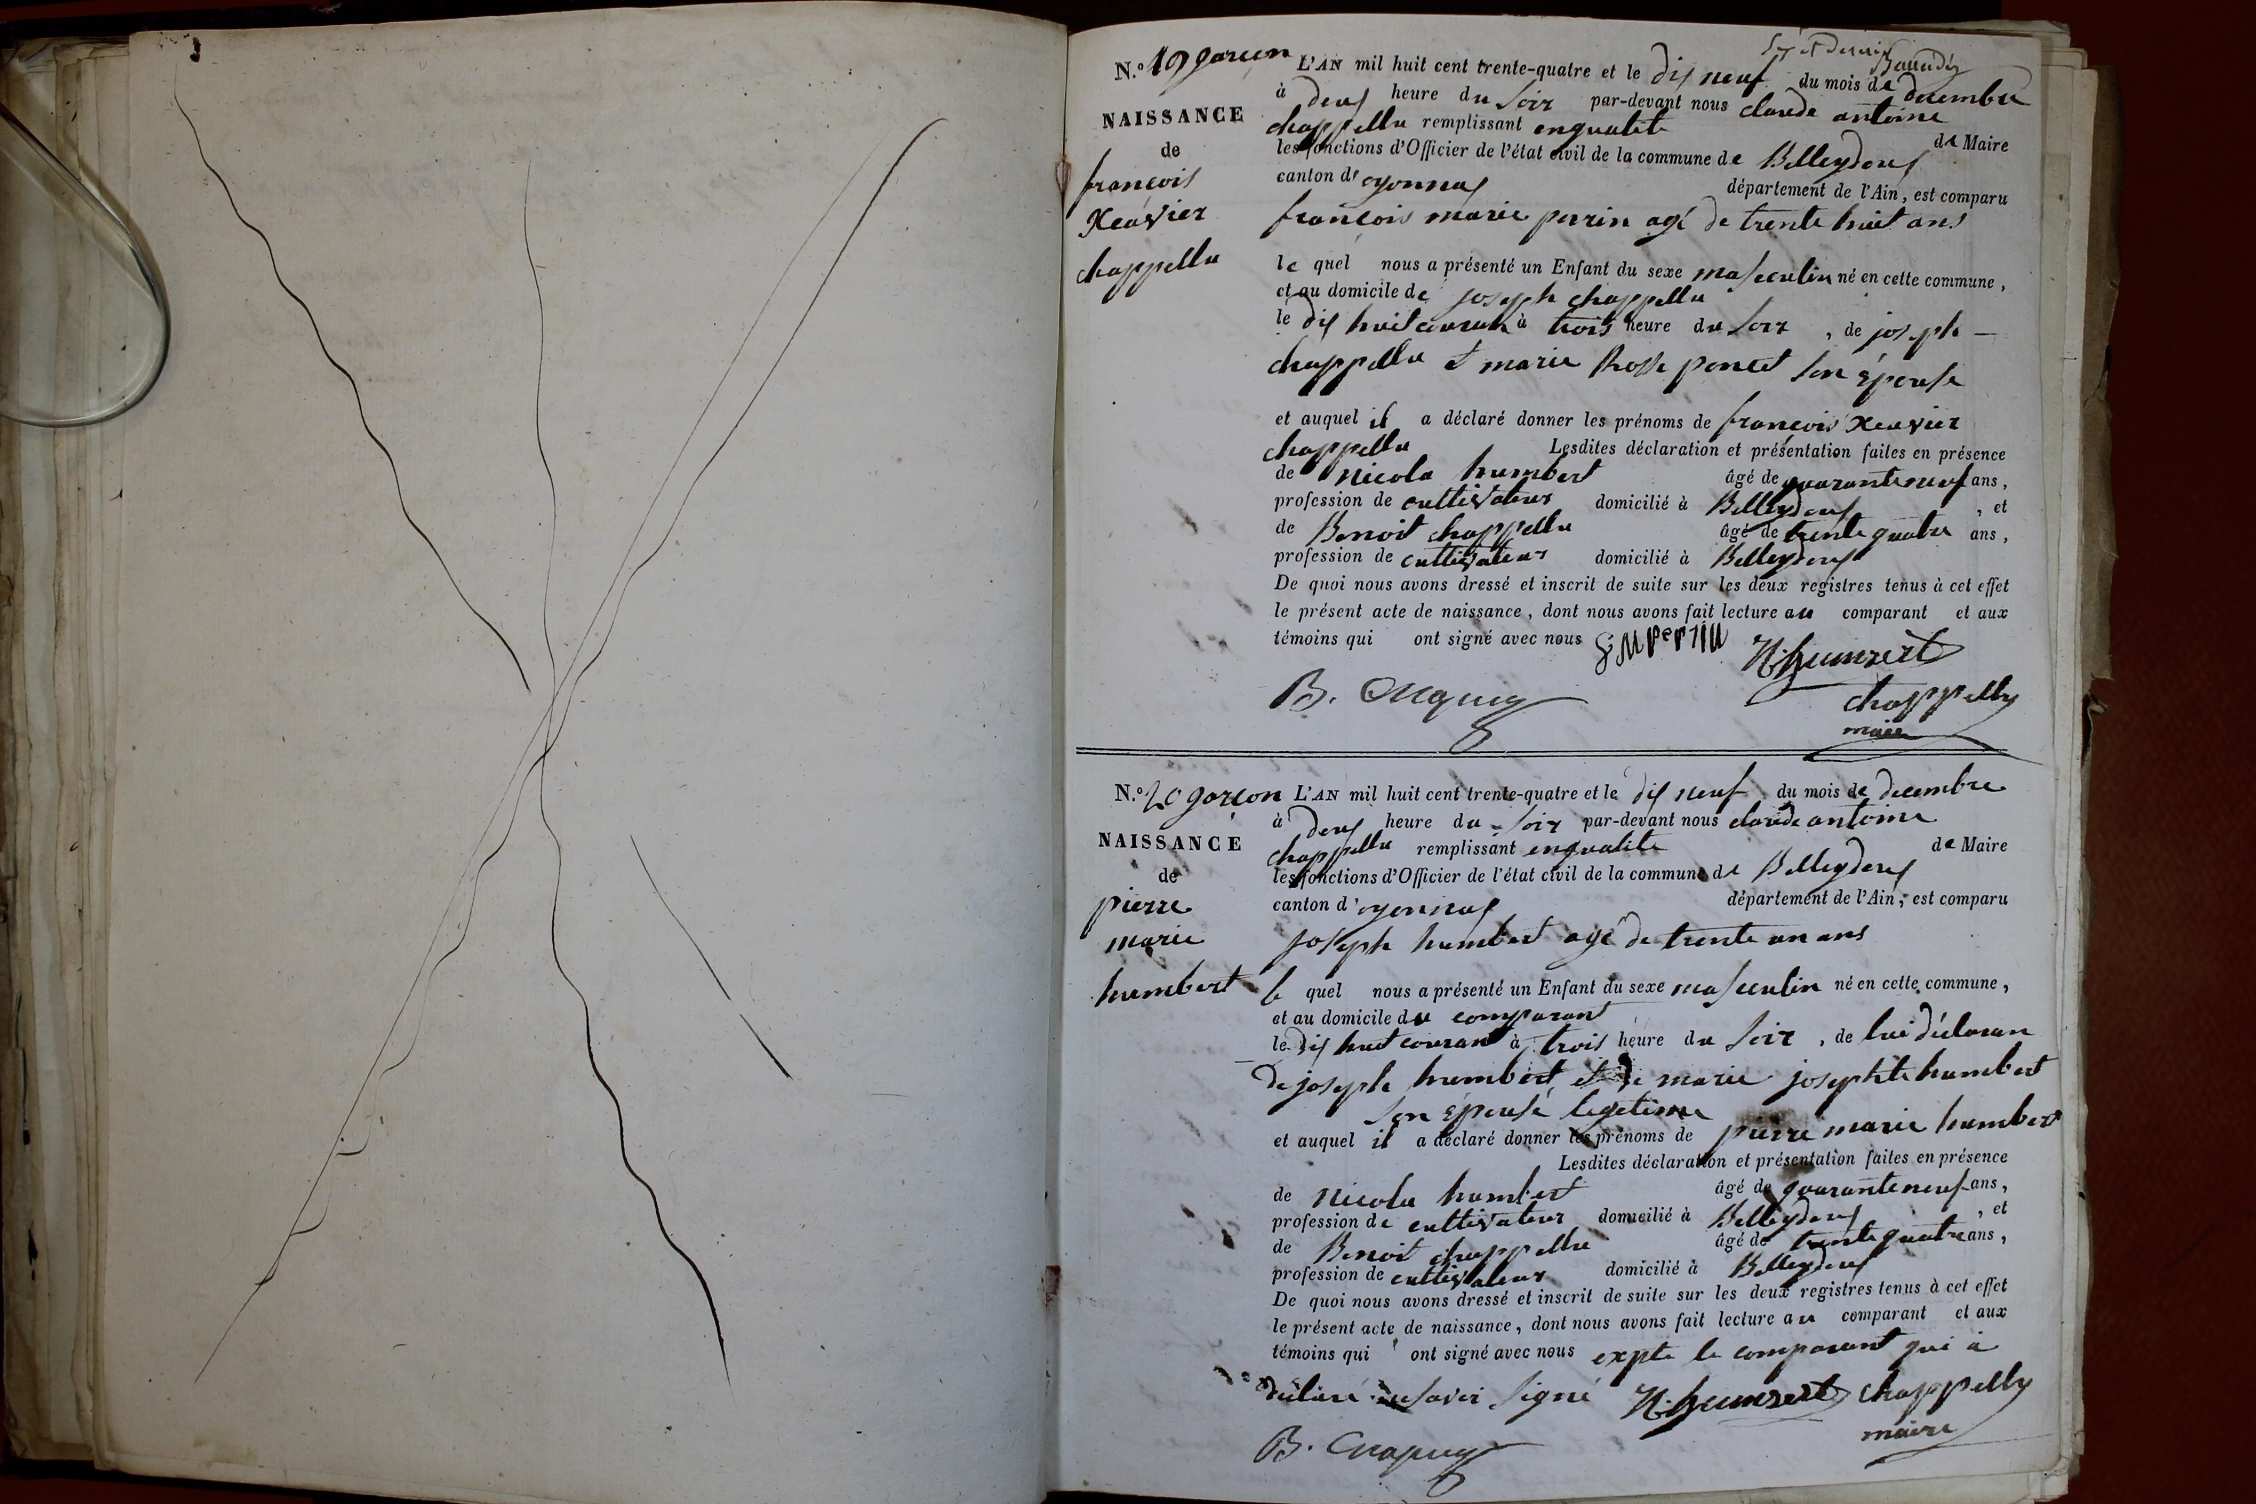 N.º 19 garcon L'AN mil huit cent trente-quatre et le dix neuf du mois de decembre
à deux heure du soir par-devant nous claude antoine
NAISSANCE chappellu remplissant enqualite de Maire
de les fonctions d'Officier de l'état civil de la commune de Belleydoux
françois canton d'oyonnax département de l'Ain, est comparu
Xeavier françois marie perrin agé de trente huit ans
chappellu le quel nous a présenté un Enfant du sexe masseculin né en cette commune,
et au domicile de joseph chappellu
le dix huit couran à trois heure du soir, de joseph
chappellu et marie Rosse poncet son épouse
et auquel il a déclaré donner les prénoms de françois Xeavier
chappellu Lesdites déclaration et présentation faites en présence
de nicola humbert âgé de quaranteneuf ans,
profession de cultivateur domicilié à Belleydoux, et
de Benoit chappellu âgé de trente quatre ans,
profession de cultivateur domicilié à Belleydoux
De quoi nous avons dressé et inscrit de suite sur les deux registres tenus à cet effet
le présent acte de naissance, dont nous avons fait lecture au comparant et aux
témoins qui ont signé avec nous
chappellu
maire
N.º 20 garcon L'AN mil huit cent trente-quatre et le dix neuf du mois de decembre
à deux heure du soir par-devant nous claude antoine
NAISSANCE chappellu remplissant enqualite de Maire
de les fonctions d'Officier de l'état civil de la commune de Belleydoux
pierre canton d'oyonnax département de l'Ain, est comparu
marie joseph humbert agé de trente un ans
humbert le quel nous a présenté un Enfant du sexe masseculin né en cette commune,
et au domicile du comparant
le dix huit couran à trois heure du soir, de lui déclaran
de joseph humbert et de marie josephte humbert
son épouse legetime
et auquel il a déclaré donner les prénoms de pierre marie humbert
Lesdites déclaration et présentation faites en présence
de nicola humbert âgé de quaranteneuf ans,
profession de cultivateur domicilié à Belleydoux, et
de Benoit chappellu âgé de trente quatre ans,
profession de cultivateur domicilié à Belleydoux
De quoi nous avons dressé et inscrit de suite sur les deux registres tenus à cet effet
le présent acte de naissance, dont nous avons fait lecture au comparant et aux
témoins qui ont signé avec nous expte le comparant qui à
déclaré signé chappellu
maire